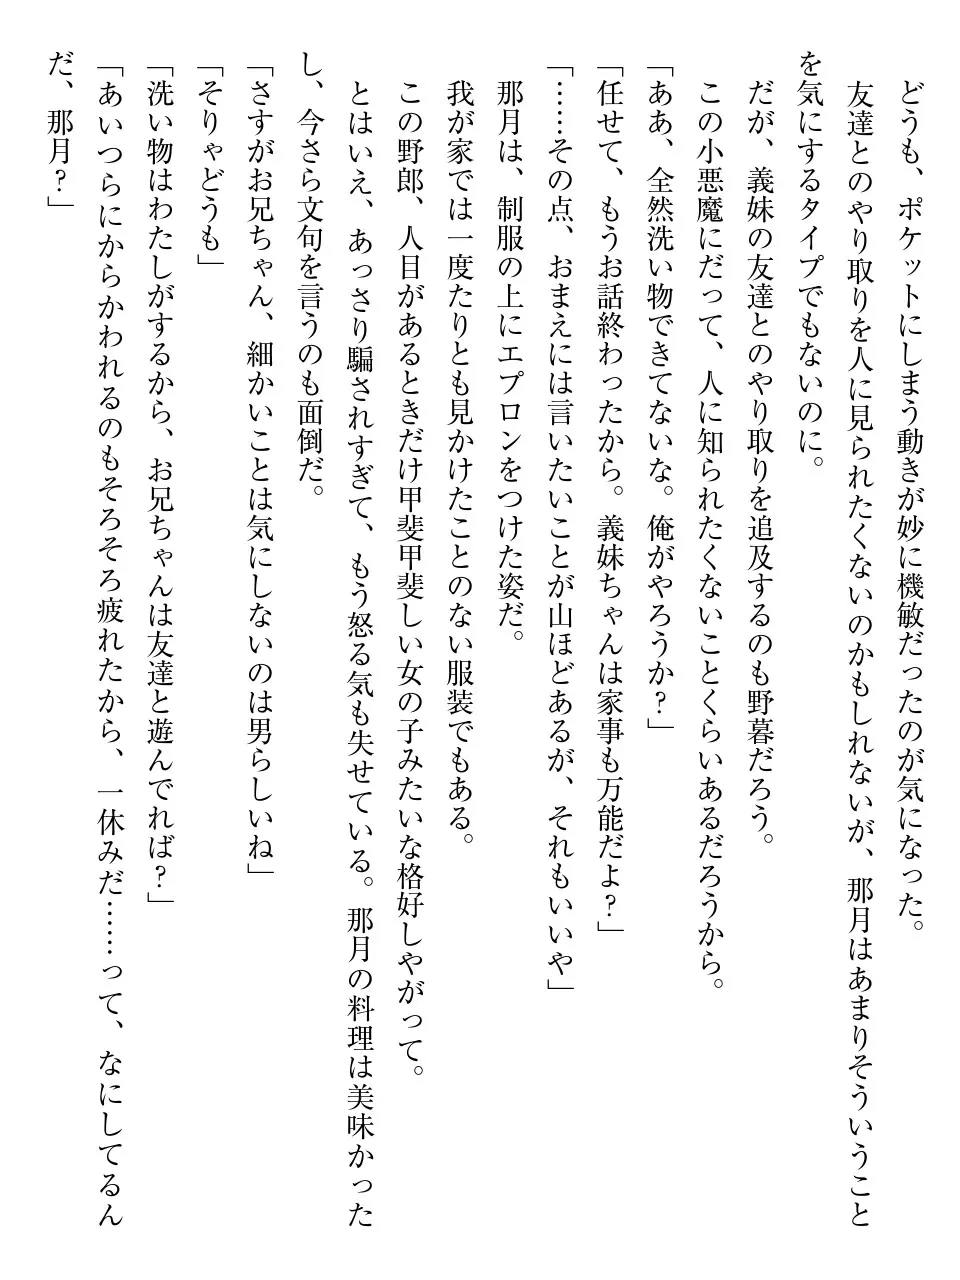 どうも、ポケットにしまう動きが妙に機敏だったのが気になった。
友達とのやり取りを人に見られたくないのかもしれないが、那月はあまりそういうこと
を気にするタイプでもないのに。
だが、義妹の友達とのやり取りを追及するのも野暮だろう。
この小悪魔にだって、人に知られたくないことくらいあるだろうから。
「ああ、全然洗い物できてないな。俺がやろうか?」
「任せて、もうお話終わったから。義妹ちゃんは家事も万能だよ?」
「……その点、おまえには言いたいことが山ほどあるが、それもいいや」
那月は、制服の上にエプロンをつけた姿だ。
我が家では一度たりとも見かけたことのない服装でもある。
この野郎、人目があるときだけ甲斐甲斐しい女の子みたいな格好しやがって。
とはいえ、あっさり騙されすぎて、もう怒る気も失せている。那月の料理は美味かった
し、今さら文句を言うのも面倒だ。
「さすがお兄ちゃん、細かいことは気にしないのは男らしいね」
「そりゃどうも」
「洗い物はわたしがするから、お兄ちゃんは友達と遊んでれば?」
「あいつらにからかわれるのもそろそろ疲れたから、一休みだ……って、なにしてるん
だ、那月?」